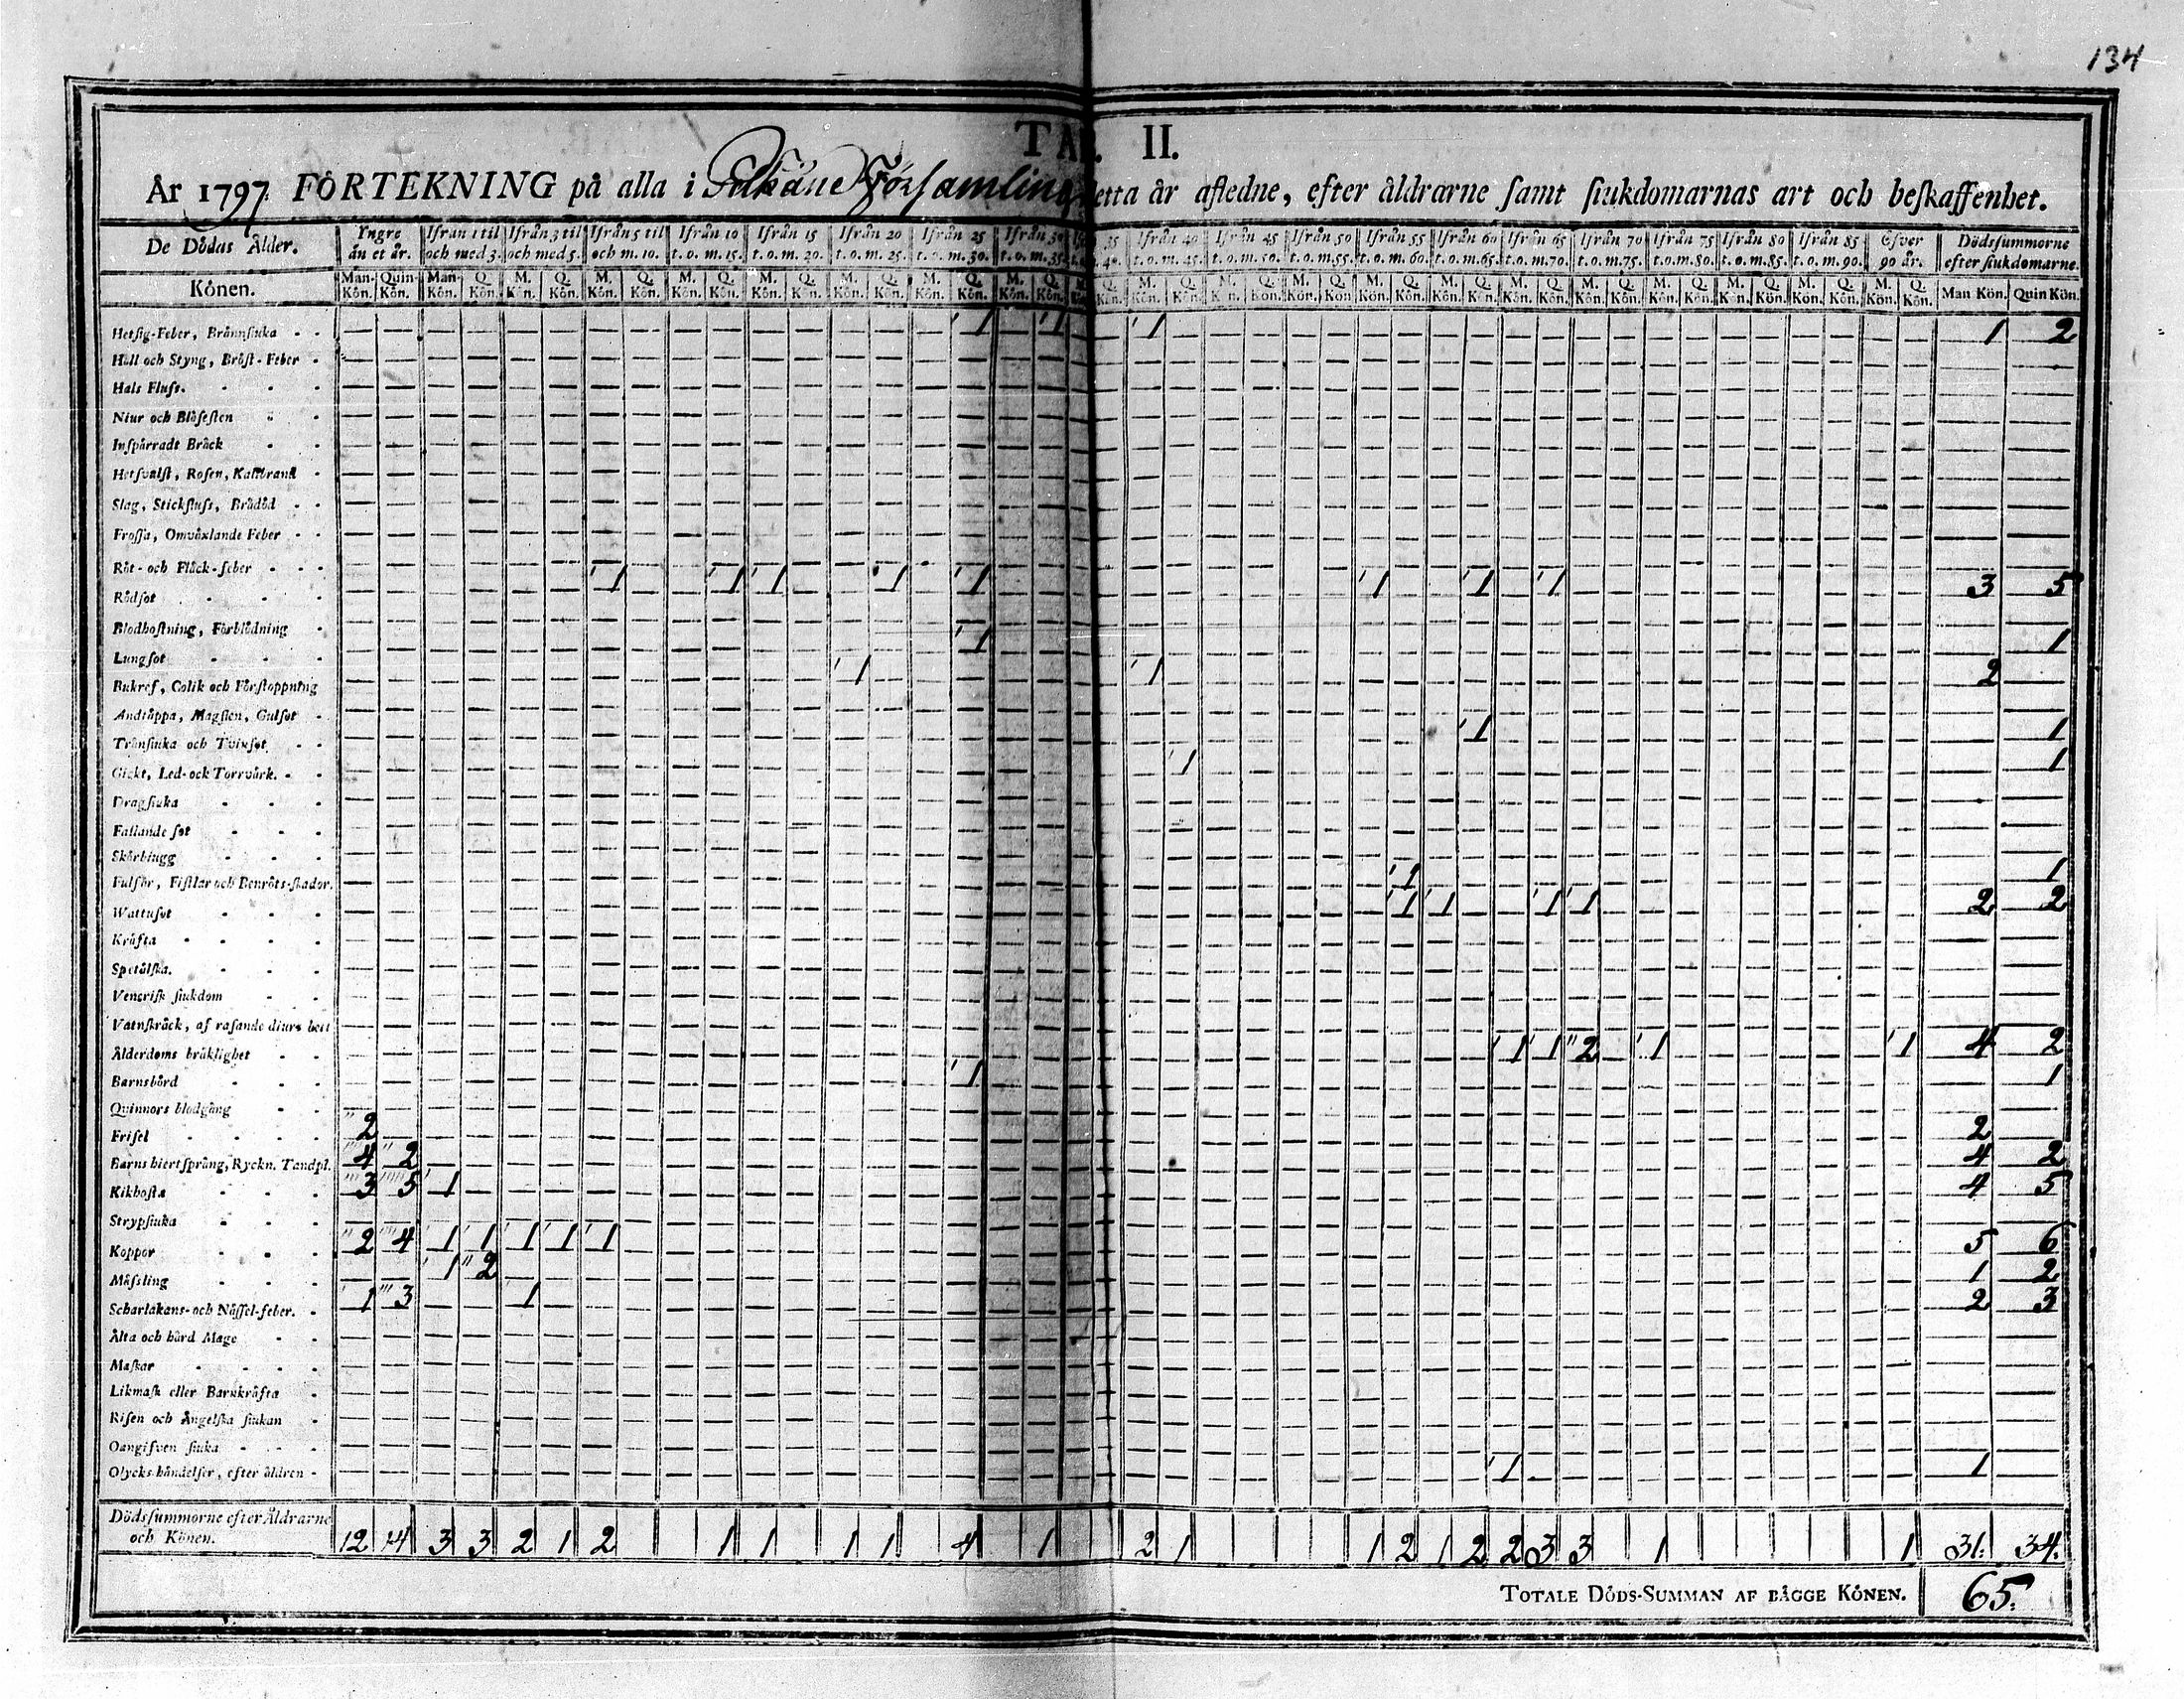 134
TAB. II.
År 1797. FÖRTEKNING på alla i Pälkäne Församling detta år afledne, efter åldrarne samt siukdomarnas art och beskaffenhet.
De Dödas Ålder. Yngre än et år. Ifrån 1 til och med 3. Ifrån 3 til och med 5. Ifrån 5 til och m. 10. Ifrån 10 t. o. m. 15. Ifrån 15 t. o. m. 20. Ifrån 20 t. o. m. 25. Ifrån 25 t. o. m. 30. Ifrån 30 t. o. m. 35. 35 40. Ifrån 40 t. o. m. 45. Ifrån 45 t. o. m. 50. Ifrån 50 t. o. m. 55. Ifrån 55 t. o. m. 60. Ifrån 60 t. o. m. 65. Ifrån 65 t. o. m. 70. Ifrån 70 t. o. m. 75. Ifrån 75 t. o. m. 80. Ifrån 80 t. o. m. 85. Ifrån 85 t. o. m. 90. Efver 90 år. Dödssummorne efter siukdomarne.
Könen. Man-Kön. Quin-Kön. Man-Kön. Q. Kön. M. Kön. Q. Kön. M. Kön. Q. Kön. M. Kön. Q. Kön. M. Kön. Q. Kön. M. Kön. Q. Kön. M. Kön. Q. Kön. M. Kön. Q. Kön. M. Kön. Q. Kön. M. Kön. Q. Kön. M. Kön. Q. Kön. M. Kön. Q. Kön. M. Kön. Q. Kön. M. Kön. Q. Kön. M. Kön. Q. Kön. M. Kön. Q. Kön. M. Kön. Q. Kön. M. Kön. Q. Kön. M. Kön. Q. Kön. M. Kön. Q. Kön. Man Kön. Quin Kön.
Hetsig-Feber, Brännsiuka 1 1 1 1 2
Håll och Styng, Bröst-Feber
Hals Fluss.
Niur och Blåsesten
Inspärradt Bråck
Hetsvulst, Rosen, Kallbrand
Slag, Stickfluss, Brådöd
Frossa, Omväxlande Feber
Röt- och Fläck-feber 1 1 1 1 1 1 1 1 3 5
Rödsot
Blodhostning, Förblödning 1 1
Lungsot 1 1 2
Bukref, Colik och Förstoppning
Andtäppa, Magsten, Gulsot 1 1
Trånsiuka och Tvinsot 1 1
Gickt, Led- och Torrvärk.
Dragsiuka
Fallande sot
Skörbiugg
Fulsår, Fistlar och Benröts-skador. 1 1
Wattusot 1 1 1 1 2 2
Kräfta
Spetälska.
Venerisk siukdom
Vatnskräck, af rasande diurs bett
Ålderdoms bräklighet 1 1 2 1 1 4 2
Barnsbörd 1 1
Quinnors blodgång
Frisel 2 2
Barns hiertsprång, Ryckn. Tandpl. 4 2 4 2
Kikhosta 3 5 1 4 5
Strypsiuka
Koppor 2 4 1 1 1 1 1 5 6
Mässling 1 2 1 2
Scharlakans- och Nässel-feber. 1 3 1 2 3
Älta och hård Mage
Maskar
Likmask eller Barnkräfta
Risen och Ängelska siukan
Oangifven siuka
Olycks-händelser, efter äldren 1 1
Dödssummorne efter Åldrarne
och Könen. 12 14 3 3 2 1 2 1 1 1 1 4 1 2 1 1 2 1 2 2 3 3 1 1 31. 34.
TOTALE DÖDS-SUMMAN AF BÄGGE KÖNEN. 65.